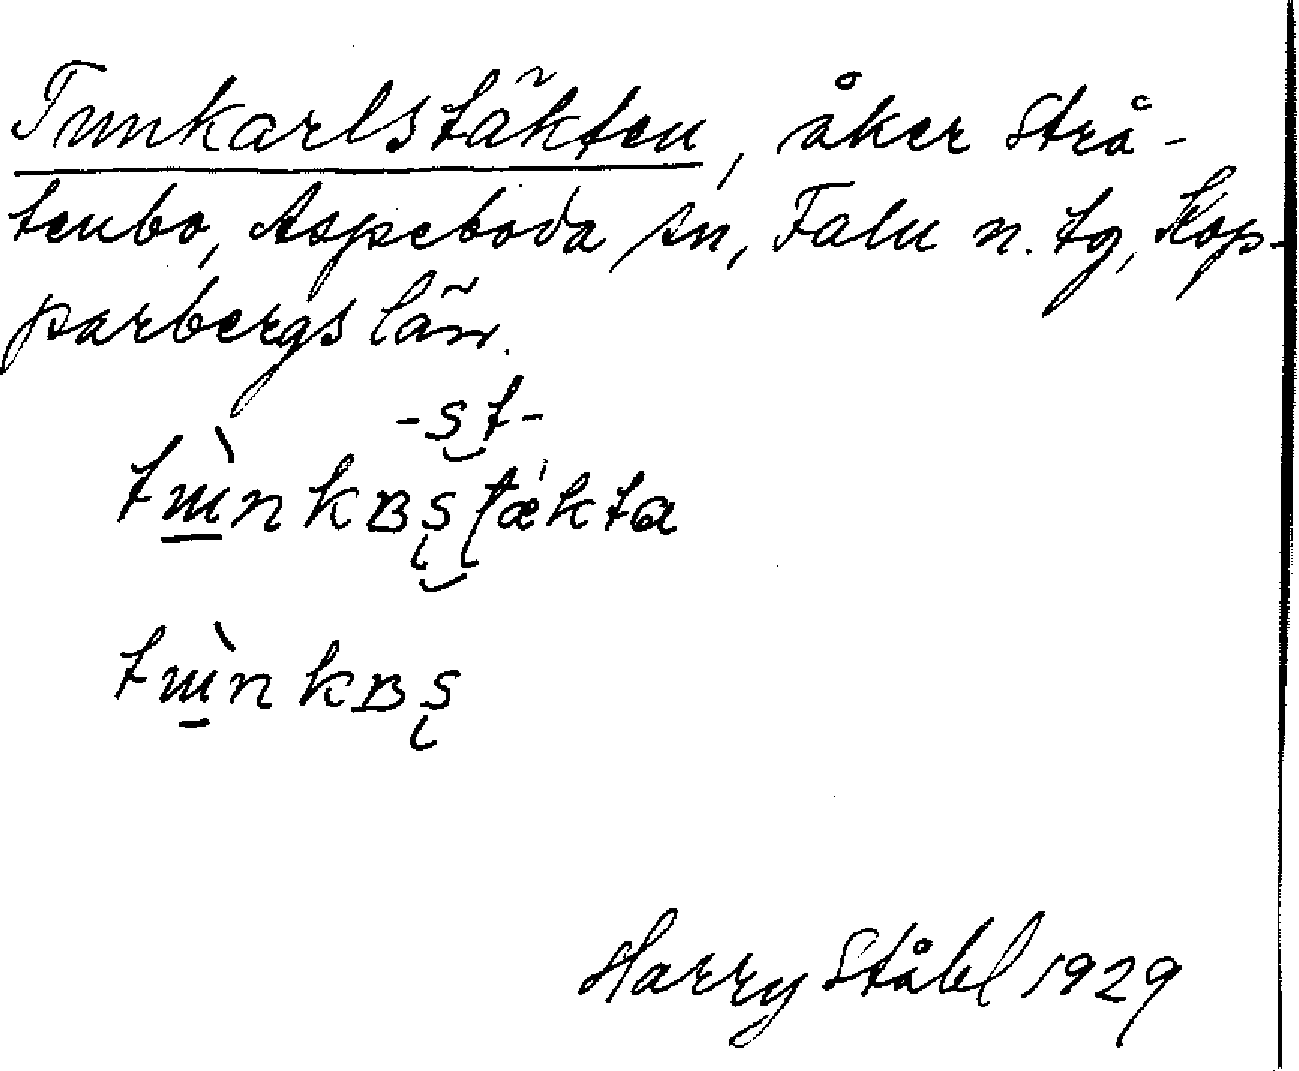 Tunkarlstäkten, åker Strå-
tenbo, Aspeboda sn, Falu n. tg, Kop-
parbergs län.
-st-
Harry Ståhl 1929